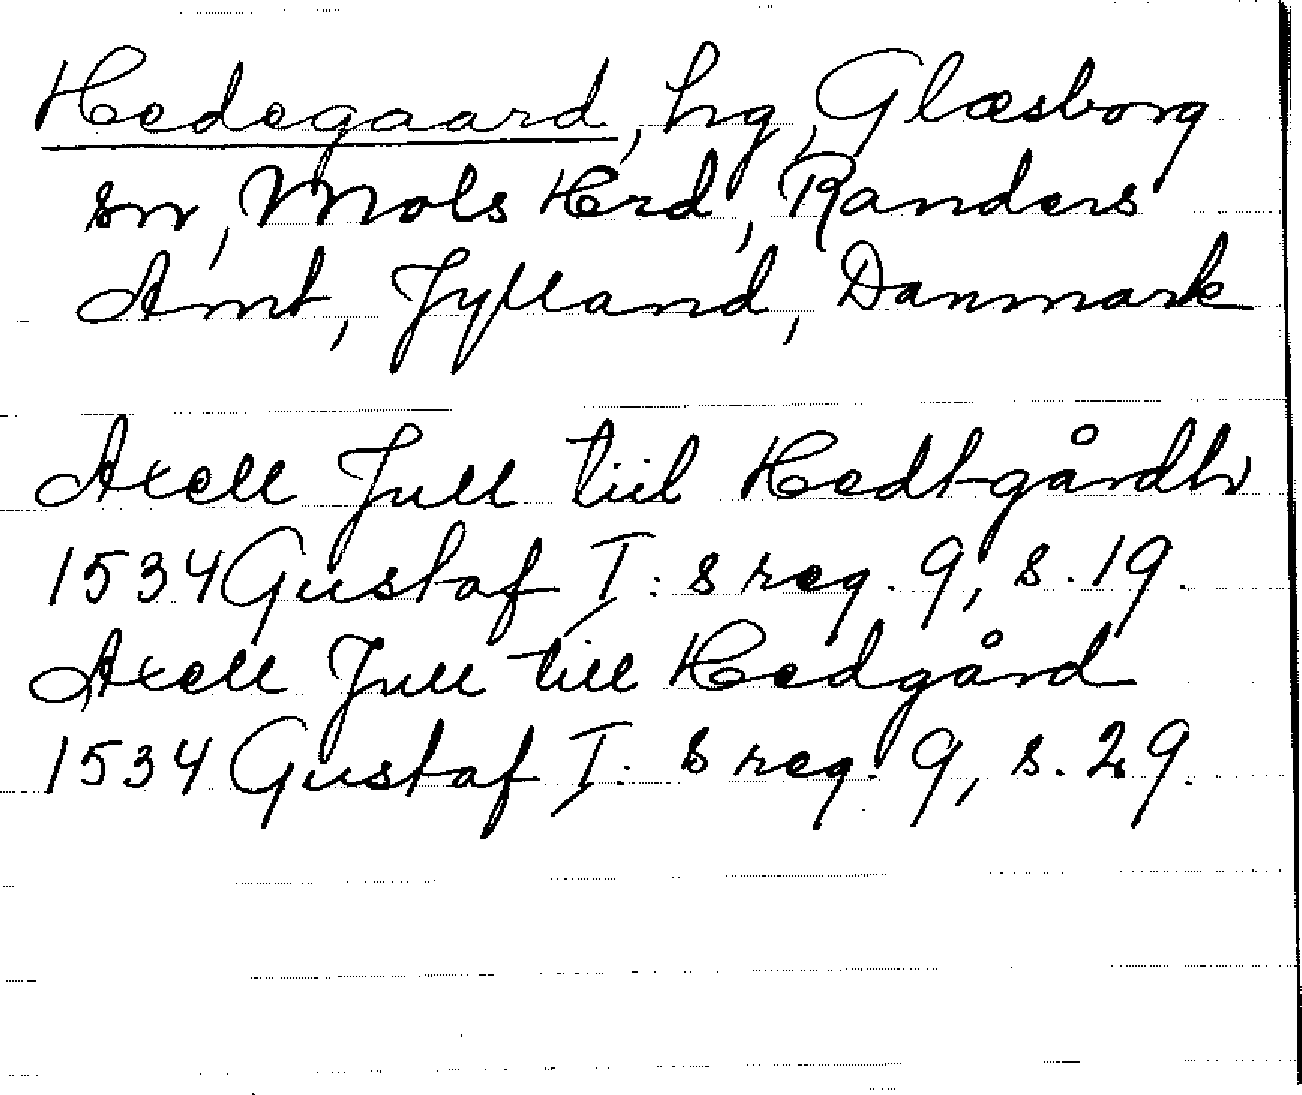 Hedegaard, hrg, Glæsborg
sn, Mols Herd, Randers
Amt, Jylland, Danmark
Axell Jull tiil Hedtgårdh
1534 Gustaf I: s reg. 9, s. 19.
Axell Jull till Hedgård
1534 Gustaf I: s reg. 9, s. 29.